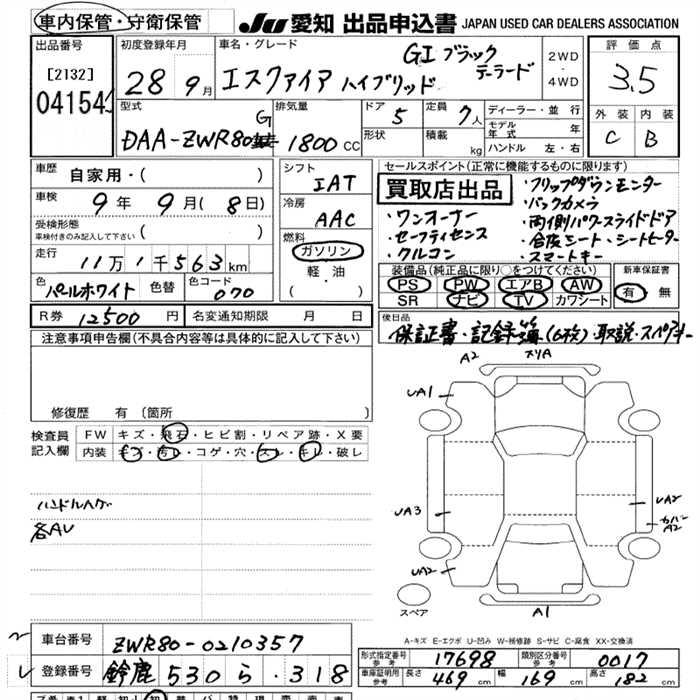 車内保管・守衛保管
JU 愛知 出品申込書 JAPAN USED CAR DEALERS ASSOCIATION
出品番号
[2132]
04154
初度登録年月
28 9月
車名・グレード
エスクァイア ハイブリッド
GI ブラック
テーラード
2WD
4WD
評価点
3.5
外装 内装
C B
型式
DAA-ZWR80 G
排気量
1800 CC
ドア 5
形状
定員 7人
積載 kg
ディーラー・並行
モデル年式 年
ハンドル 左・右
車歴
自家用・( )
車検
9年 9月 (8日)
受検形態
車検付きのみ記入して下さい ( )
走行
11万1千563km
色
パールホワイト
色替
色コード
070
シフト
IAT
冷房
AAC
燃料
ガソリン
軽・油
( )
セールスポイント(正常に機能するものに限ります)
買取店出品
・ワンオーナー
・セーフティセンス
・クルコン
・フリップダウンモニター
・バックカメラ
・両側パワースライドドア
・合皮シート・シートヒーター
・スマートキー
装備品(純正品に限り○をつけてください)
PS PW エアB AW
SR ナビ TV カワシート
新車保証書
有 無
R券 12500円
名変通知期限 月 日
後日品
保証書・記録簿(6枚)・取説・スペアキー
注意事項申告欄(不具合内容等は具体的に記入して下さい)
修復歴 有 (箇所 )
検査員
記入欄
FW キズ・飛石・ヒビ割・リペア跡・X要
内装 キズ・汚レ・コゲ・穴・スレ・キレ・破レ
ハンドルハゲ
各AU
A2
スリA
UA1
UA3
UA2
UA2
カバー
A2
A1
スペア
A-キズ E-エクボ U-凹み W-補修跡 S-サビ C-腐食 XX-交換済
車台番号
ZWR80-0210357
登録番号
鈴鹿 530 ら ・318
形式指定番号 参考 17698
類別区分番号 参考 0017
車庫証明用 参考 長さ 469cm 幅 169cm 高さ 182cm